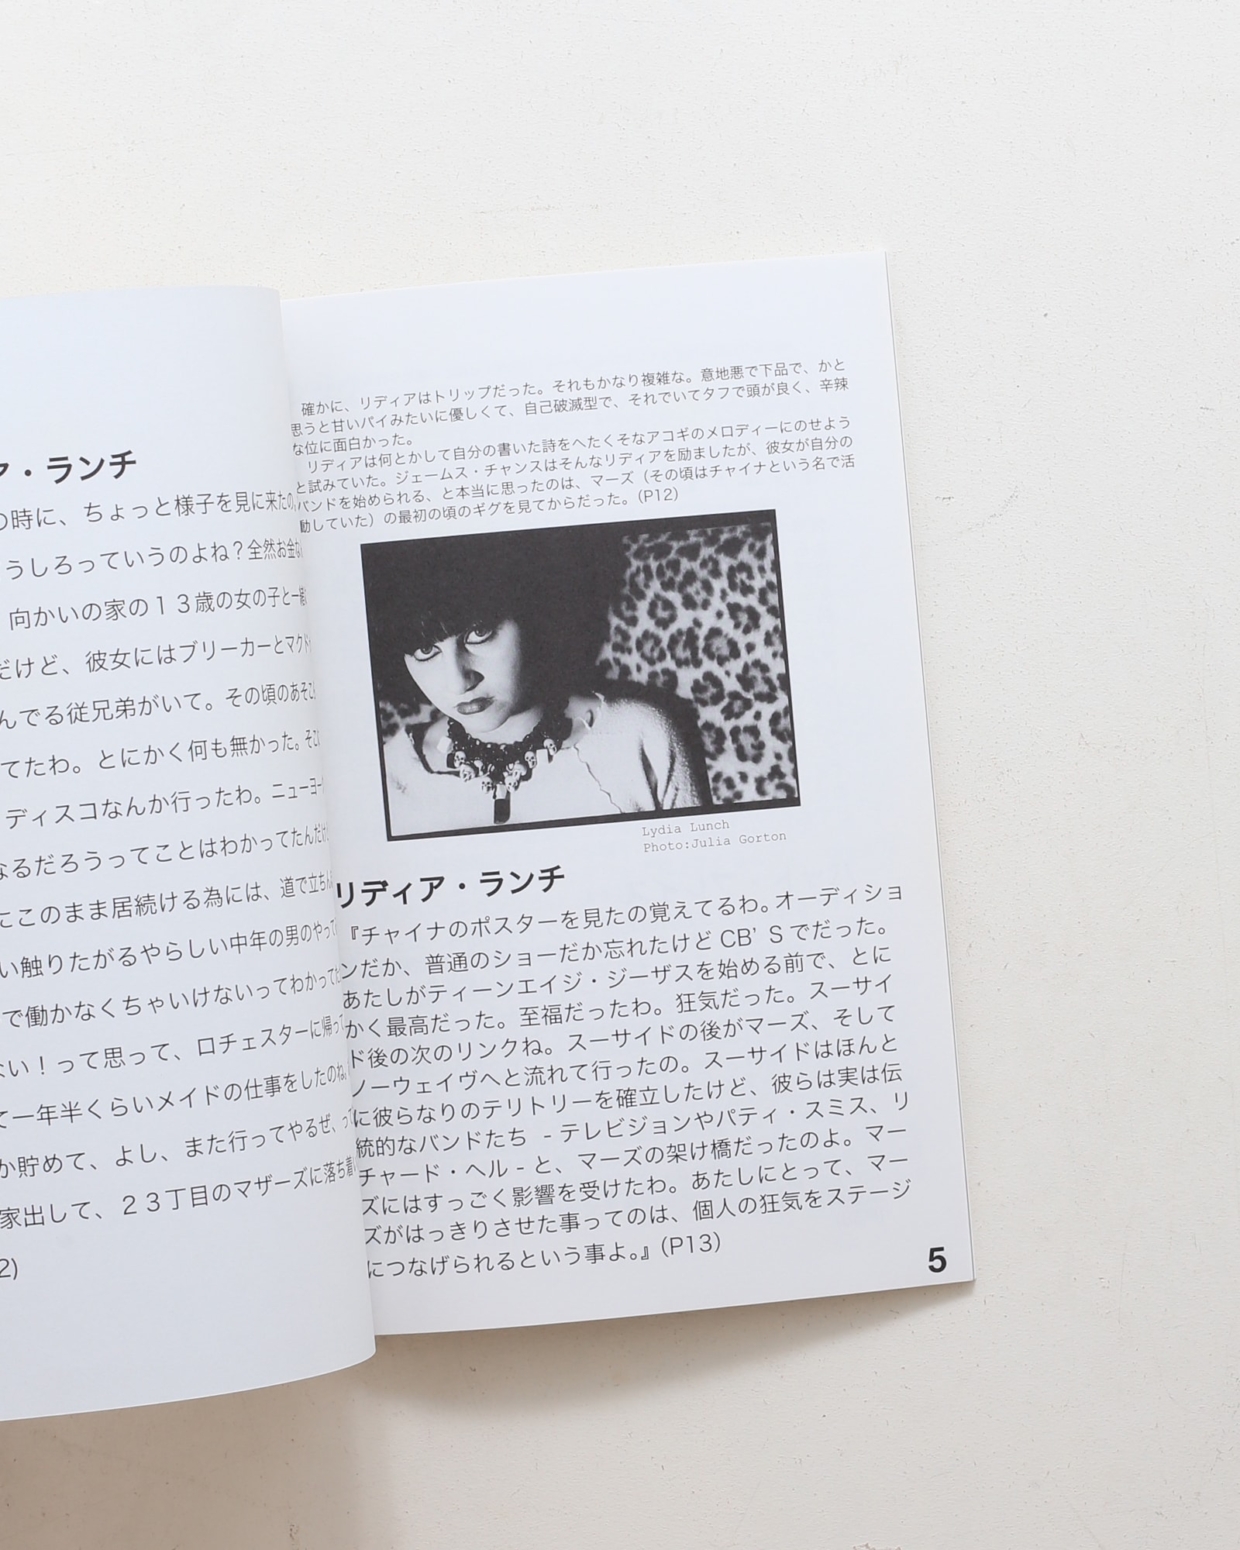 ア・ランチ
の時に、ちょっと様子を見に来たの
うしろっていうのよね？全然お金な
向かいの家の１３歳の女の子と一緒
だけど、彼女にはブリーカーとマクド
んでる従兄弟がいて。その頃のあそこ
てたわ。とにかく何も無かった。そこ
ディスコなんか行ったわ。ニューヨー
なるだろうってことはわかってたんだけ
にこのまま居続ける為には、道で立ちん
い触りたがるやらしい中年の男のやって
で働かなくちゃいけないってわかってた
ない！って思って、ロチェスターに帰って
て一年半くらいメイドの仕事をしたのね。
か貯めて、よし、また行ってやるぜ、って
家出して、２３丁目のマザーズに落ち着
2)
確かに、リディアはトリップだった。それもかなり複雑な。意地悪で下品で、かと
思うと甘いパイみたいに優しくて、自己破滅型で、それでいてタフで頭が良く、辛辣
な位に面白かった。
リディアは何とかして自分の書いた詩をへたくそなアコギのメロディーにのせよう
と試みていた。ジェームス・チャンスはそんなリディアを励ましたが、彼女が自分の
バンドを始められる、と本当に思ったのは、マーズ（その頃はチャイナという名で活
動していた）の最初の頃のギグを見てからだった。(P12)
Lydia Lunch
Photo:Julia Gorton
リディア・ランチ
『チャイナのポスターを見たの覚えてるわ。オーディショ
ンだか、普通のショーだか忘れたけど CB’S でだった。
あたしがティーンエイジ・ジーザスを始める前で、とに
かく最高だった。至福だったわ。狂気だった。スーサイ
ド後の次のリンクね。スーサイドの後がマーズ、そして
ノーウェイヴへと流れて行ったの。スーサイドはほんと
に彼らなりのテリトリーを確立したけど、彼らは実は伝
統的なバンドたち - テレビジョンやパティ・スミス、リ
チャード・ヘル - と、マーズの架け橋だったのよ。マー
ズにはすっごく影響を受けたわ。あたしにとって、マー
ズがはっきりさせた事ってのは、個人の狂気をステージ
につなげられるという事よ。』(P13)
5